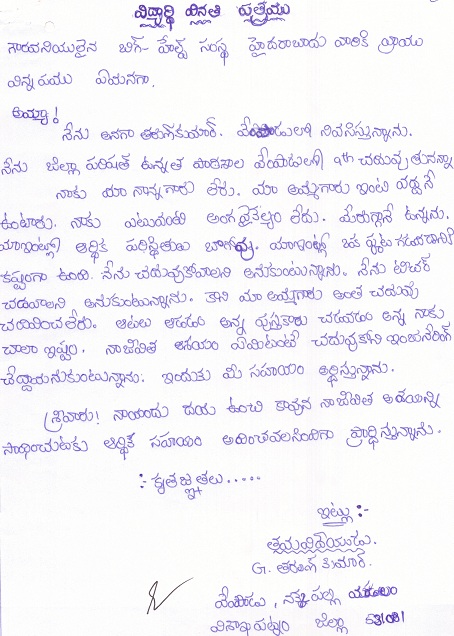 విద్యార్థి విన్నతి పత్రము
గౌరవనియులైన బిగ్- హేల్ప్ సంస్థ హైదరాబాదు వారికి వ్రాయు
విన్నపము ఏమనగా.
అమ్మా!
నేను అనగా తరుణ్‌కుమార్. వేంపాడులో నివసిస్తున్నాను.
నేను జిల్లా పరిషత్ ఉన్నత పాఠశాల వేంపాడులో 9th చదువుతున్నా
నాకు మా నాన్నగారు లేరు. మా అమ్మగారు ఇంటి వద్దనే
ఉంటారు. నాకు ఎటువంటి అంగవైకల్యం లేదు. మేరుగ్గానే ఉన్నను.
మాఇంట్లో ఆర్థిక పరిస్థితులు బాగోవు. మాఇంట్లో ఒక పూట గడవడానికి
కష్టంగా ఉంది. నేను చదువుకోవాలని అనుకుంటున్నాను. నేను టిచర్
చదవాలని అనుకుంటున్నాను. కాని మా అమ్మగారు అంత చదువు
చదివించలేరు. ఆటలు ఆడడం అన్న పుస్తకాలు చదవడం అన్న నాకు
చాలా ఇష్టం. నాజీవిత ఆశయం ఏమిటంటే చదువుకోని ఇంజనీరింగ్
చేద్దామనుకుంటున్నాను. ఇందుకు మీ సహాయం అర్థిస్తున్నాను.
శ్రీవారు! నాయందు దయ ఉంచి కావున నాజీవిత ఆశయాన్ని
సాధించుటకు ఆర్థిక సహాయం అందించవలసిందిగా ప్రార్థిస్తున్నాను.
:- కృతజ్ఞతలు.....
ఇట్లు :-
తమవిదేయుడు.
G. తరుణ్ కుమార్.
వేంపాడు, నక్కపల్లి మండలం
విసాఖపట్నం జిల్లా 531081